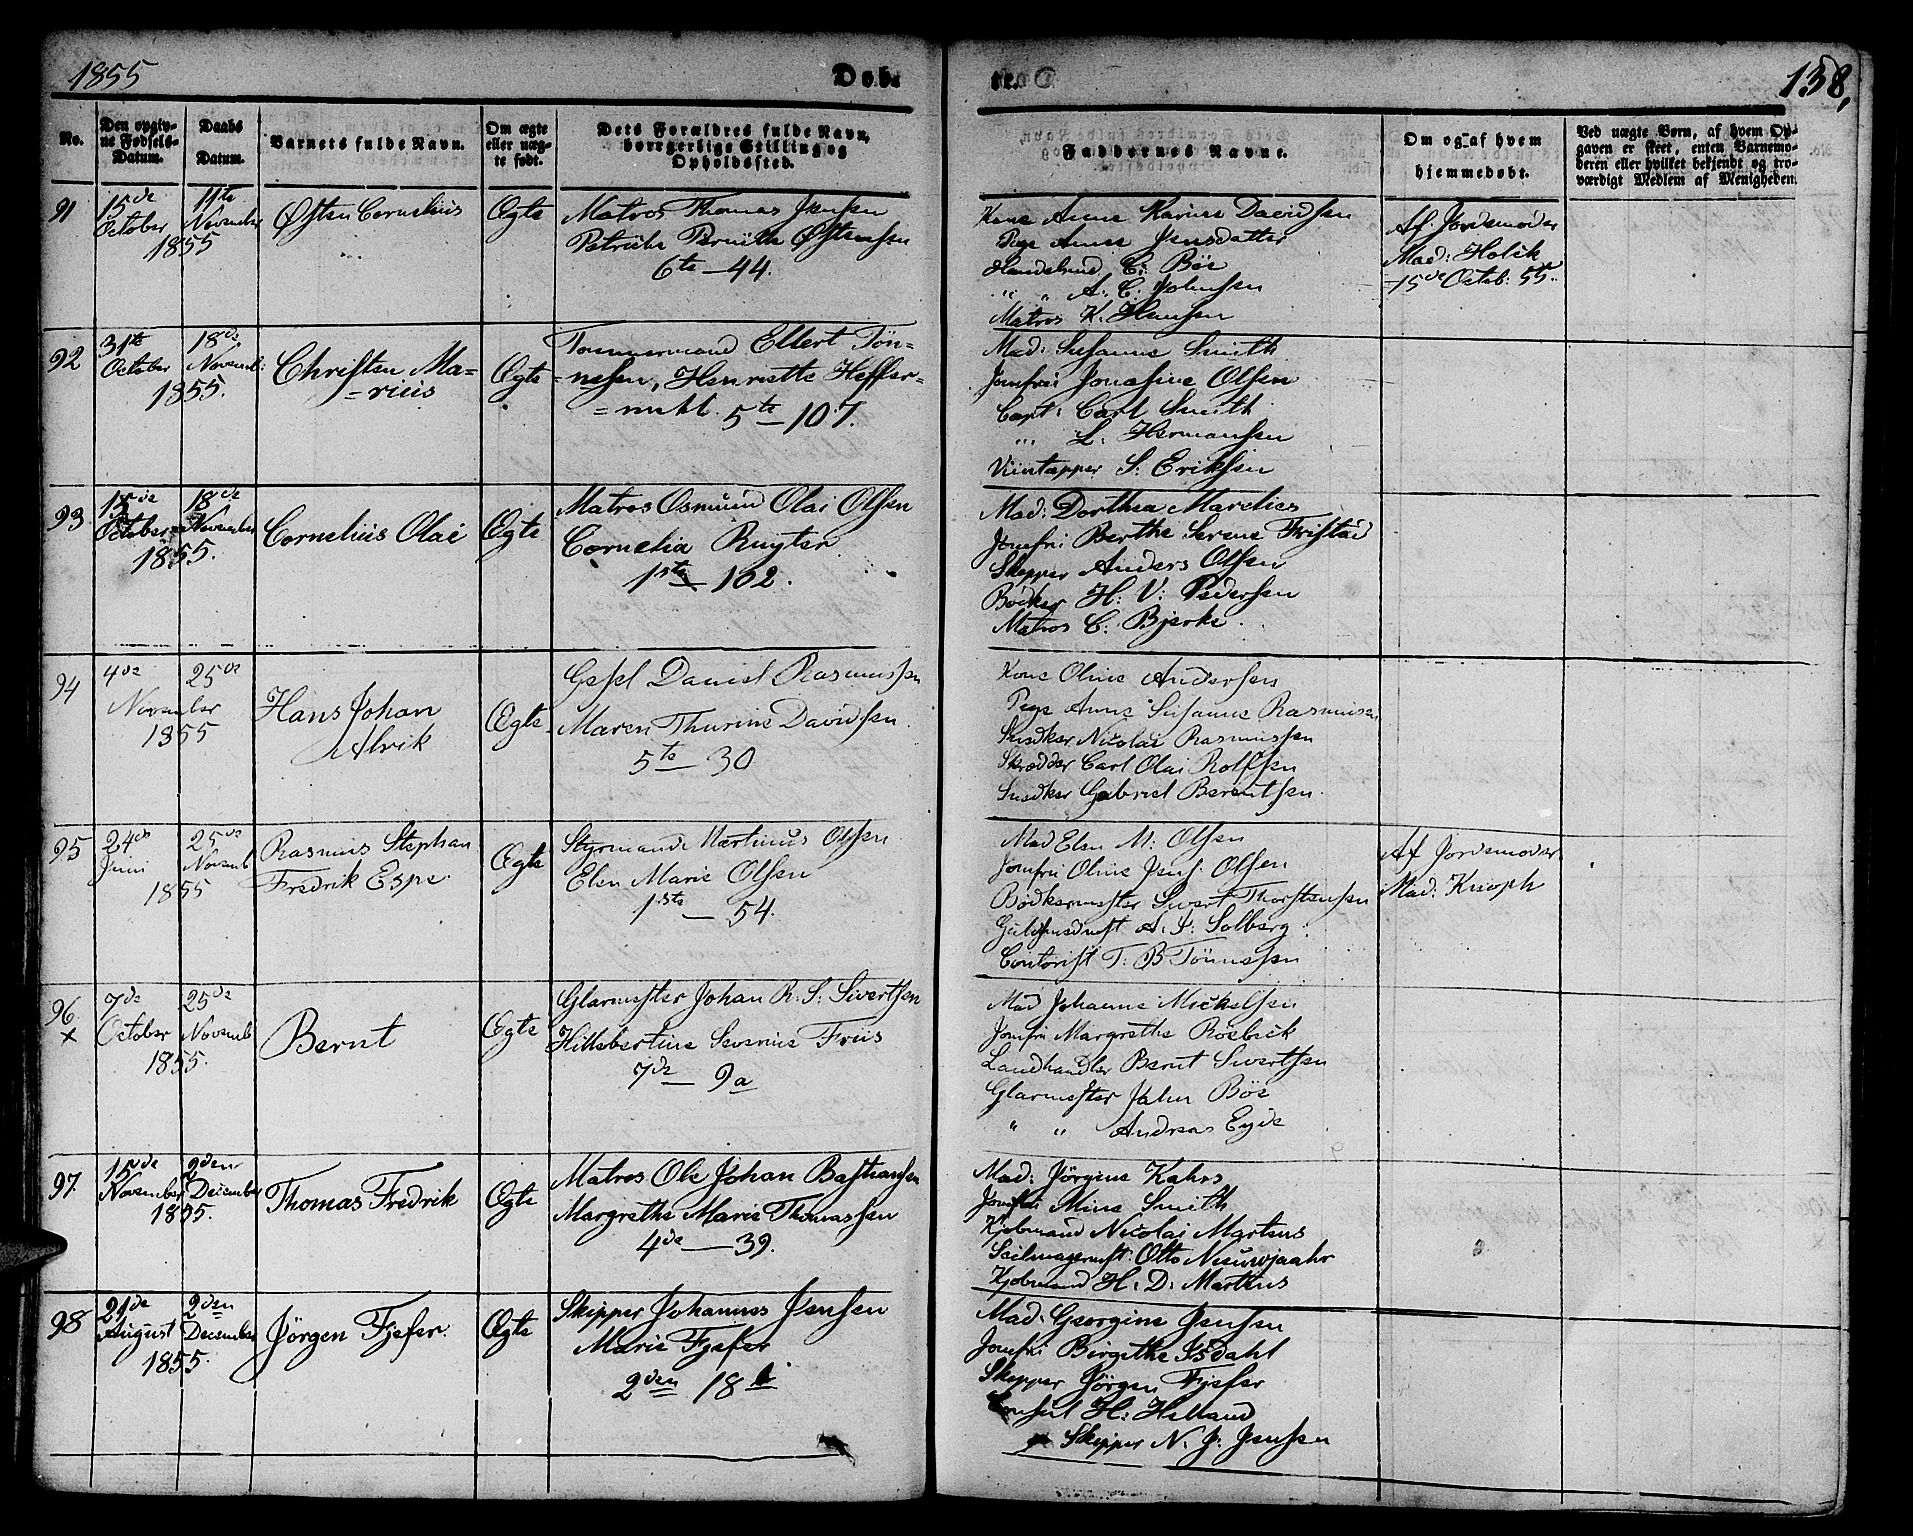 1855
Døb-
te.
138,
No.
Den opgiv-
ne Fødsels-
Datum.
Daabs
Datum.
Barnets fulde Navn.
Om ægte
eller uæg-
te født.
Dets Forældres fulde Navn,
borgerlige Stilling og
Opholdssted.
Faddernes Navne.
Om og af hvem
hjemmedøbt.
Ved uægte Børn, af hvem Op-
gaven er skeet, enten Barnemo-
deren eller hvilket bekjendt og tro-
værdigt Medlem af Menigheden.
91
15de
October
11te
November
1855
Østen Cornelius
Ægte
Matros Thomas Jensen
Østensen
6te - 44.
Kone Anne Karine Davidsen
Pige Anne Jensdatter
C: Böe
" " A: C: Johnsen
Matros K. Hansen
Af Jordemoder
Mad: Holck
15de Octob: 55.
92
31te
October
18de
Novemb:
1855.
Christen Ma=
=rius
Ægte
Tømmermand Ellert Tön=
=nesen, Henriette Heffer=
=mehl. 5te - 107.
Mad: Susanne Smith
Jomfru Jonasine Olsen
Capt: Carl Smith
" L. Hermansen
Viintapper S: Eriksen
93
15de
October
18de
November
1855.
Cornelius Olai
Ægte
Matros Osmund Olai Olsen
Cornelia Ruyter
1ste - 102.
Mad: Dorthea Marelies
Jomfru Berthe Serene Fristad
Skipper Anders Olsen
Bödker H: V: Pedersen
Matros C: Bjerke.
94
4de
25de
November
1855
Hans Johan
Alrik
Ægte
Gesel Daniel Rasmussen
Maren Thurine Davidsen.
5te - 30
Kone Oline Andersen
Pige Anne Susanne Rasmusen
Snedker Nicolai Rasmussen
Skrædder Carl Olai Rolfsen
Snedker Gabriel Berentsen.
95
24de
Juni
25de
Novemb
1855
Rasmus Stephan
Fredrik Espe.
Ægte
Styrmand Martinus Olsen
Elen Marie Olsen
1ste - 54.
Mad Elen M: Olsen
Jomfru Oline Jens. Olsen
Bödkermester Sivert Thorstensen
Guldsmedmst A. J. Solberg.
Contorist T: B Tönnessen
Af Jordemoder
Mad: Knoph
96
x
7de
October
25de
Novemb
1855.
Bernt
Ægte
Glarmester Johan R: S: Sivertsen
Hillebertine Severine Friis
7de - 9a
Mad Johanne Mickelsen
Jomfru Margrethe Roebeck
Landhandler Bernt Sivertsen
Glarmester Jahn Böe
" " Andreas Eyde
97.
15de
November
2den
December
1855.
Thomas Fredrik
Ægte
Matros Ole Johan Bastiansen
Margrethe Marie Thomassen
4de - 39.
Mad: Jörgine Kahrs
Jomfru Mine Smith
Kjøbmand Nicolai Martens
Seilmagermst: Otto
Kjøbmand H. D. Martens
98
21de
August
2den
December
1855.
Jörgen Fjefer.
Ægte
Skipper Johannes Jensen
Marie Fjefer
2den 18 b
Mad: Georgine Jensen
Jomfru Birgithe Isdahl
Skipper Jörgen Fjefer
Consul H: Helland
Skipper N. J. Jensen